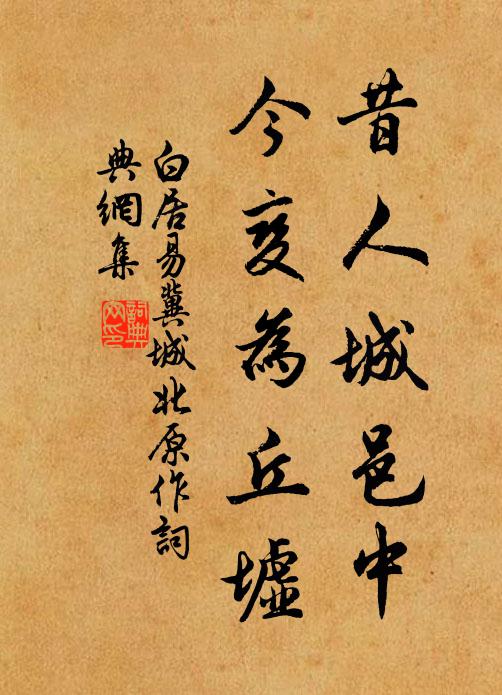 昔人城邑中
今变為丘墟
白居易冀城北原作詞
典網集
詞典網印